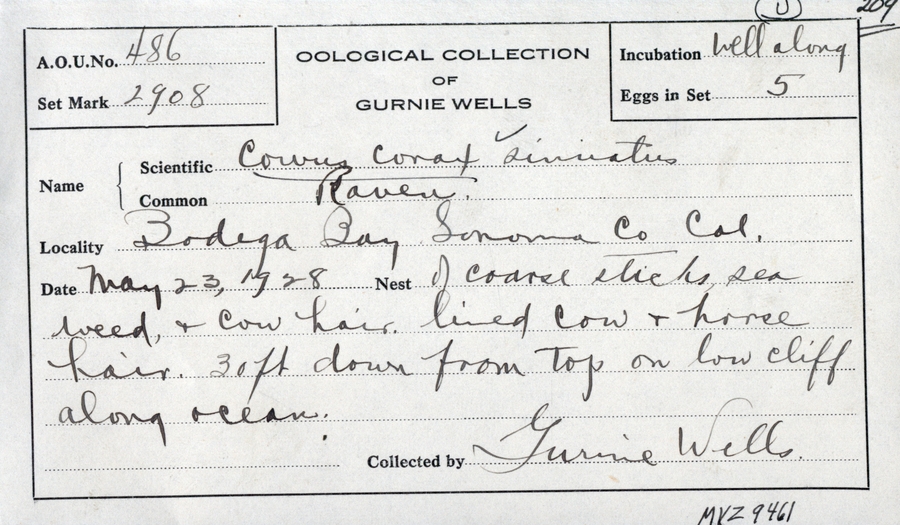 U 209
A.O.U.No. 486
Set Mark 2908
OOLOGICAL COLLECTION
OF
GURNIE WELLS
Incubation Well along
Eggs in Set 5
Name
Scientific Corvus corax sinuatus
Common Raven.
Locality Bodega Bay Sonoma Co Cal.
Date May 23, 1928 Nest of coarse sticks, sea
weed, & cow hair. lined cow & horse
hair. 30ft down from top on low cliff
along ocean.
Collected by Gurnie Wells.
MVZ 9461